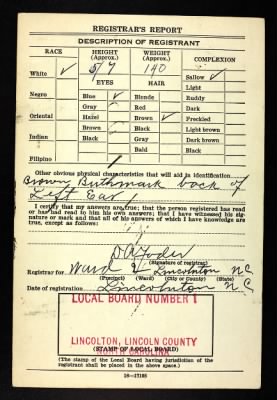 REGISTRAR'S REPORT
DESCRIPTION OF REGISTRANT
RACE HEIGHT (Approx.) WEIGHT (Approx.) COMPLEXION
White ✓ 5/7 140 Sallow ✓
EYES HAIR Light
Negro Blue ✓ Blonde Ruddy
Gray Red Dark
Oriental Hazel Brown ✓ Freckled
Brown Black Light brown
Indian Black Gray Dark brown
Bald Black
Filipino
Other obvious physical characteristics that will aid in identification
Brown Birthmark back of
Left Ear
I certify that my answers are true; that the person registered has read or has had read to him his own answers; that I have witnessed his signature or mark and that all of his answers of which I have knowledge are true, except as follows:
D A Yoder
(Signature of registrar)
Registrar for Ward 2 Lincolnton N C
(Precinct) (Ward) (City or County) (State)
Date of registration Lincolnton N C
LOCAL BOARD NUMBER 1
LINCOLNTON, LINCOLN COUNTY
NORTH CAROLINA
(STAMP OF LOCAL BOARD)
(The stamp of the Local Board having jurisdiction of the registrant shall be placed in the above space.)
16-17105